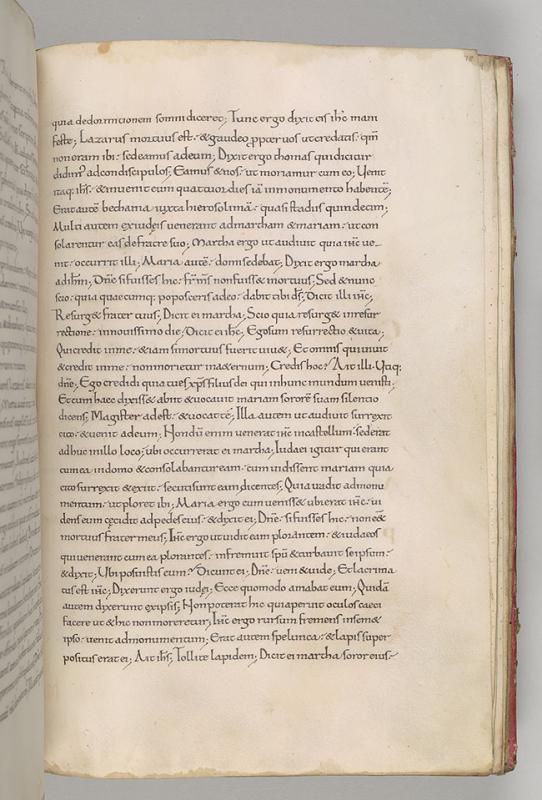 quia dedormitionem somni diceret; Tunc ergo dixit eis ihc mani
feste; Lazarus mortuus est. & gaudeo ꝓpter vos ut credatis. qm̄
non eram ibi. sed eamus ad eum; Dixit ergo thomas qui dicitur
didim' ad condiscipulos; Eamus & nos. ut moriamur cum eo; Uenit
itaq; ihs. & inuenit eum quattuor dies iā in monumento habentē;
Erat autē bethania iuxta hierosolimā. quasi stadiis quindecim;
Multi autem ex iudeis venerant ad martham & mariam. ut con
solarentur eas de fratre suo; Martha ergo ut audiuit quia ihc ue
nit. occurrit illi; Maria autē domi sedebat; Dixit ergo martha
ad ihm; Dn̄e si fuisses hic. fr̄ ms̄ non fuiss& mortuus; Sed & nunc
scio. quia quaecumq; poposceris a deo. dabit tibi ds̄; Dicit illi ihc;
Resurg& frater tuus; Dicit ei martha; Scio quia resurg& in resur
rectione. in nouissimo die; Dicit ei ihc; Ego sum resurrectio & uita;
Qui credit in me. & iam si mortuus fuerit uiu&; Et omnis qui uiuit
& credit in me. non morietur in aeternum; Credis hoc? Ait illi. Utiq;
dn̄e; Ego credidi quia tu es xps̄ filius dei qui in hunc mundum uenisti;
Et cum haec dixiss& abiit & uocauit mariam sororē suam silentio
dicens; Magister adest. & uocat te; Illa autem ut audiuit surrexit
cito. & uenit ad eum; Nondū enim venerat ihc in castellum. sed erat
adhuc in illo loco; ubi occurrerat ei martha; Iudaei igitur qui erant
cum ea in domo & consolabantur eam. cum uidissent mariam quia
cito surrexit & exiit. secuti sunt eam dicentes; Quia uadit ad monu
mentum. ut ploret ibi; Maria ergo cum ueniss& ubi erat ihc. ui
dens eum cecidit ad pedes eius. & dixit ei; Dn̄e. si fuisses hic. non ess&
mortuus frater meus; Ihc ergo ut uidit eam plorantem. & iudaeos
qui venerant cum ea plorantes. infremuit spū & turbauit se ipsum.
& dixit; Ubi posuistis eum? Dicunt ei; Dn̄e. ueni & uide; Et lacrima
tus est ihc; Dixerunt ergo iudei; Ecce quomodo amabat eum; Quidā
autem dixerunt ex ipsis; Non poterat hic qui aperuit oculos caeci
facere ut & hic non moreretur; Ihc ergo rursum fremens in sem&
ipso. uenit ad monumentum; Erat autem spelunca. & lapis super
positus erat ei; Ait ihs; Tollite lapidem; Dicit ei martha soror eius.